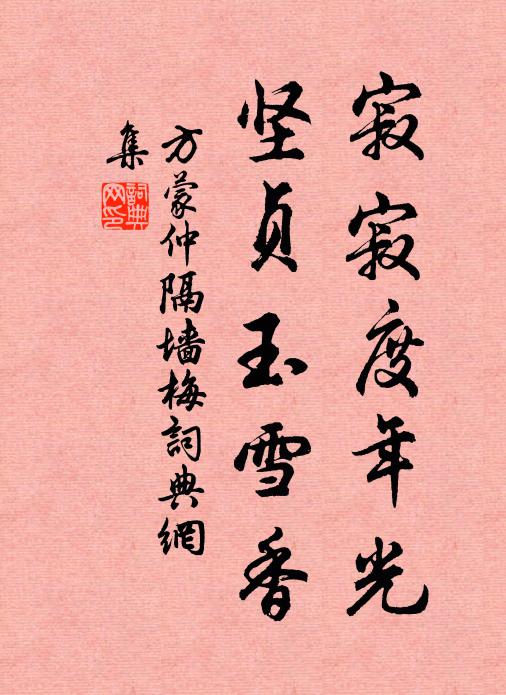 寂寂度年光
坚贞玉雪香
方蒙仲隔墙梅詞典網
集
詞典
网印